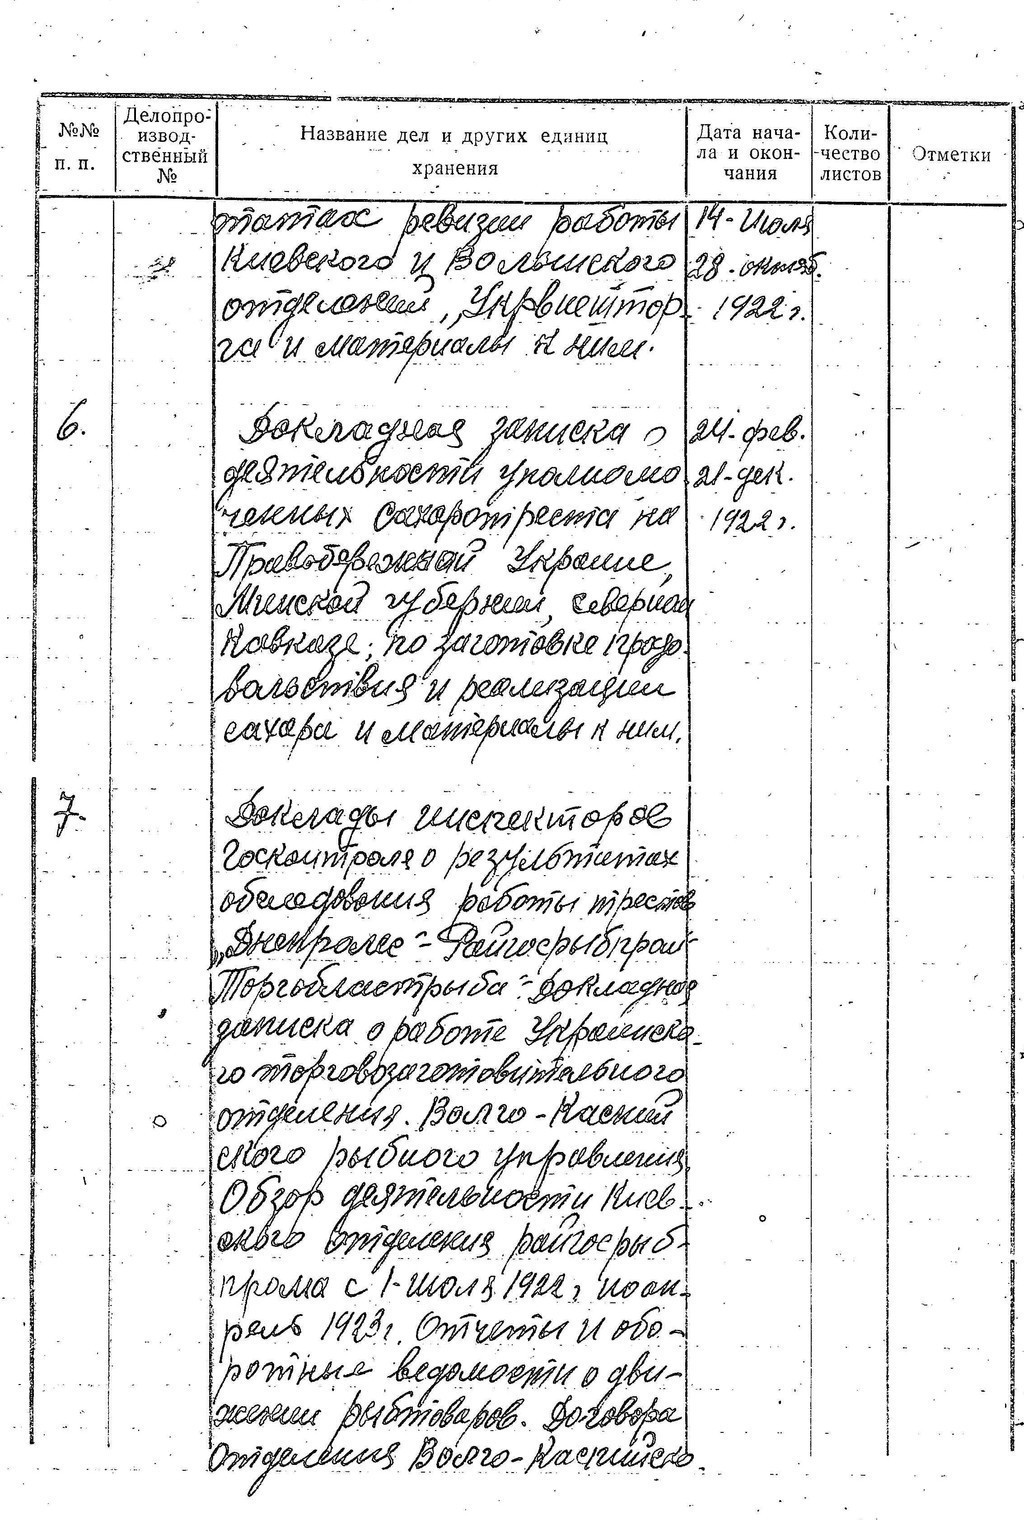 №№ п. п.
Делопро-
извод-
ственный
№
Название дел и других единиц
хранения
Дата нача-
ла и окон-
чания
Коли-
чество
листов
Отметки
татах ревизии работы 14-июля
Киевского и Волынского 28-октяб.
отделений „Укрвнештор- 1922 г.
га" и материалы к ним.
6. Докладная записка о 24-фев.
деятельности уполномо 21-дек.
ченных Сахаротреста на 1922 г.
Правобережной Украине,
Минской губернии, северном
Кавказе, по заготовке продо-
вольствия и реализации
сахара и материалы к ним.
7. Доклады инспекторов
Госконтроля о результатах
обследования работы трестов
„Днепролес"- Райгосрыбпром"
Торгобластрыба"- Докладная
записка о работе Украинско-
го торговозаготовительного
отделения. Волго-Каспий
ского рыбного управления.
Обзор деятельности Киев-
ского отделения райгосрыб-
прома с 1-июля 1922 г. по ап-
рель 1923 г. Отчеты и обо-
ротные ведомости о дви-
жении рыбтоваров. Договора
Отделения Волго-Каспийско-